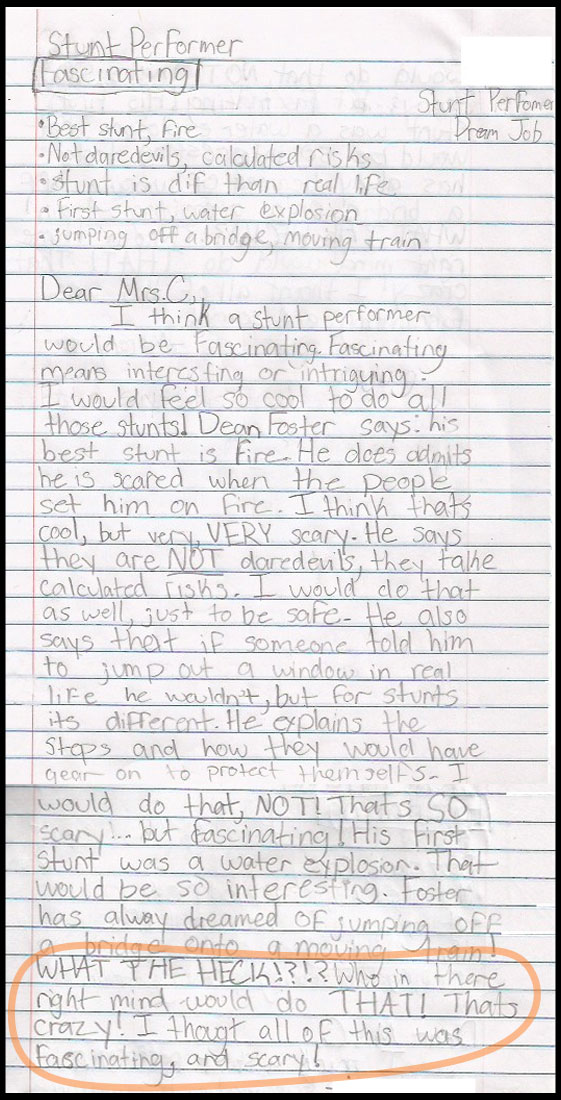 Stunt Performer
Fascinating!
Stunt Perfomer
Dream Job
• Best stunt, fire
• Not daredevils, calculated risks
• stunt is dif than real life
• First stunt, water explosion
• jumping off a bridge, moving train
Dear Mrs. C.,
I think a stunt performer
would be Fascinating. Fascinating
means interesting or intriguing.
I would feel so cool to do all
those stunts! Dean Foster says: his
best stunt is Fire. He does admits
he is scared when the people
set him on fire. I think thats
cool, but very, VERY scary. He says
they are NOT daredevils, they take
calculated risks. I would do that
as well, just to be safe. He also
says that if someone told him
to jump out a window in real
life he wouldn't, but for stunts
its different. He explains the
steps and how they would have
gear on to protect themselfs. I
would do that, NOT! Thats SO
scary!.. but fascinating! His first
stunt was a water explosion. That
would be so interesting. Foster
has alway dreamed OF jumping off
a bridge onto a moving train!
WHAT THE HECK!?!? Who in there
right mind would do THAT! Thats
crazy! I thougt all of this was
Fascinating, and scary!